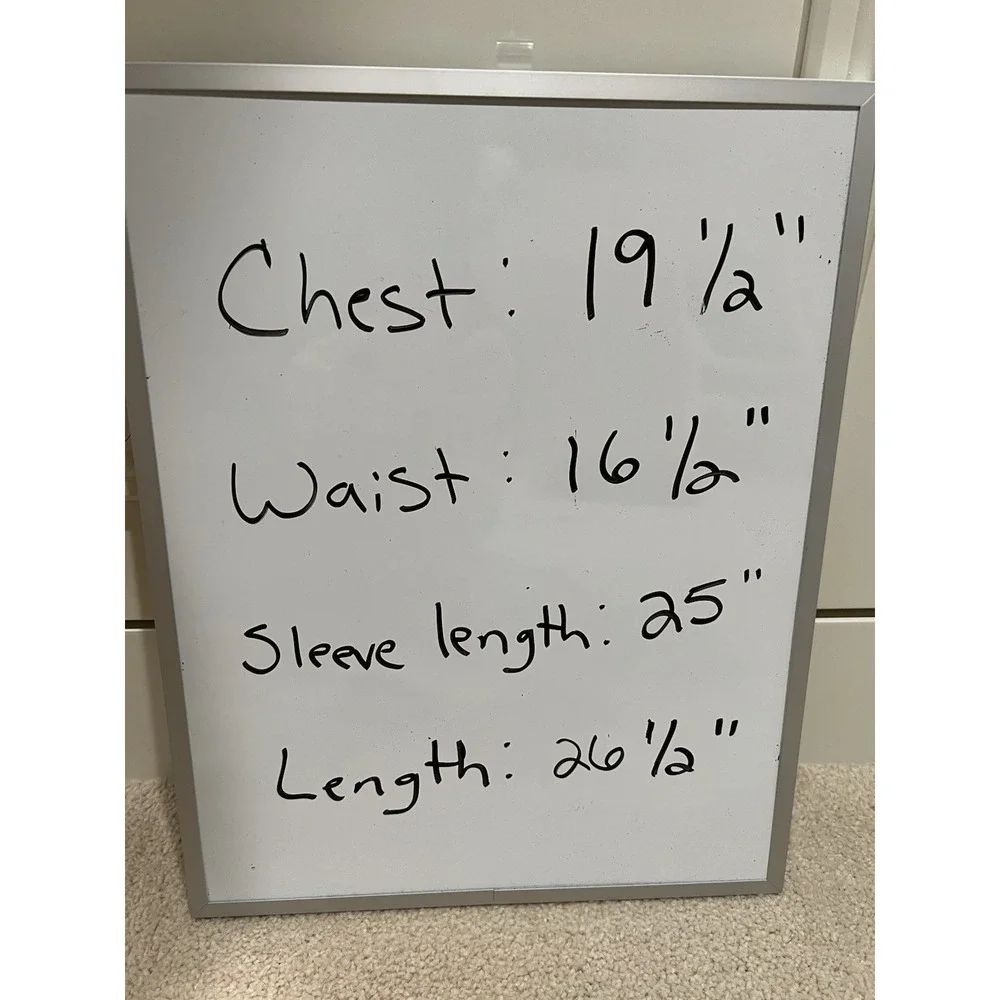 Chest: 19 1/2"
Waist: 16 1/2"
Sleeve length: 25"
Length: 26 1/2"